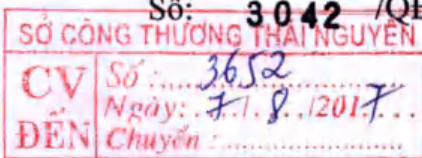 Số: 3042 /QĐ
SỞ CÔNG THƯƠNG THÁI NGUYÊN
CV ĐẾN
Số: 3652
Ngày: 7 / 8 /2017
Chuyển: